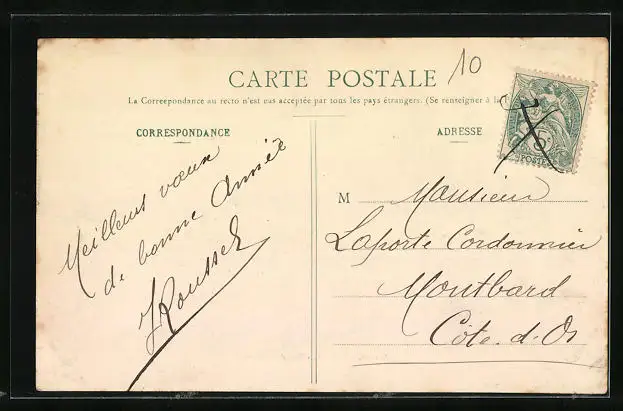 10
CARTE POSTALE
La Correspondance au recto n'est pas acceptée par tous les pays étrangers. (Se renseigner à la
CORRESPONDANCE
Meilleurs vœux
de bonne année
Roussel
ADRESSE
M Monsieur
Laporte Cordonnier
Montbard
Côte-d'Or
5
POSTES